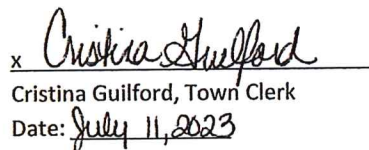 x Cristina Guilford
Cristina Guilford, Town Clerk
Date: July 11, 2023